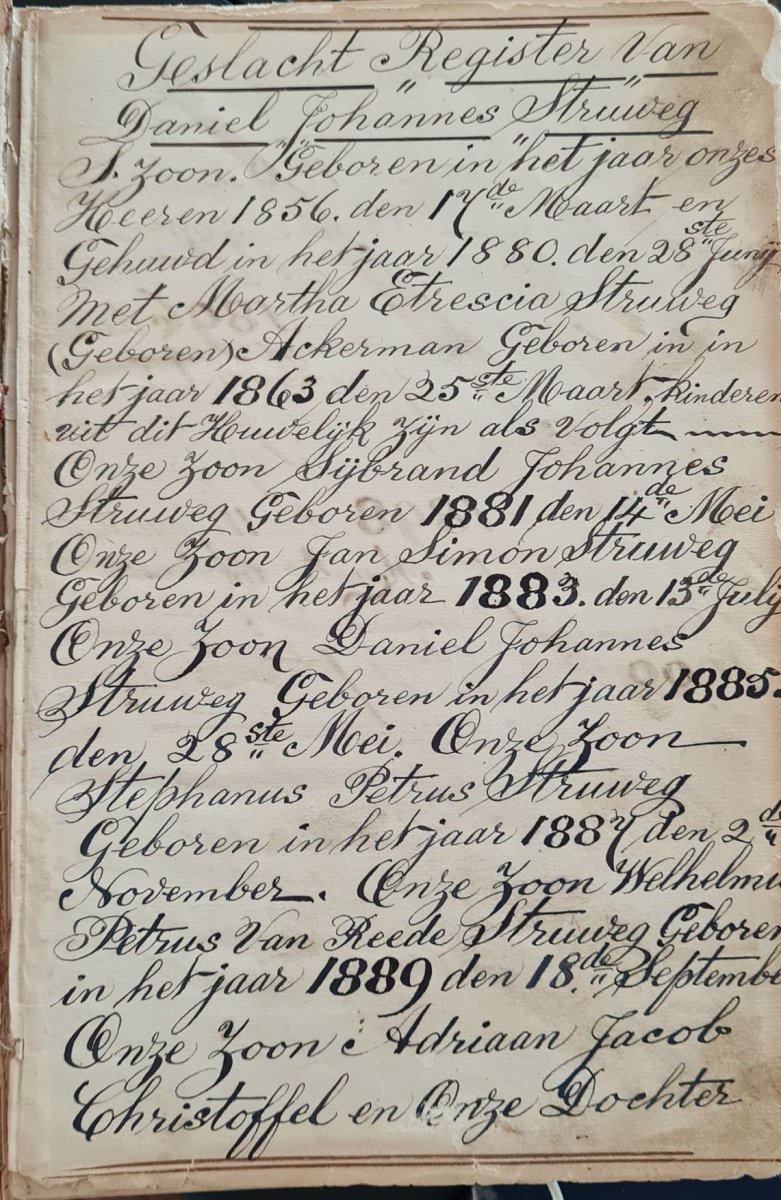 Geslacht Register Van
Daniel Johannes Struweg
S. Zoon. Geboren in het jaar onzes
Heeren 1856. den 17de Maart en
Gehuwd in het jaar 1880. den 28ste Juny
Met Martha Etrescia Struweg
(Geboren) Ackerman Geboren in in
het jaar 1863 den 25ste Maart. kinderen
uit dit Huwelijk zijn als Volgt
Onze Zoon Sijbrand Johannes
Struweg Geboren 1881 den 14de Mei
Onze Zoon Jan Simon Struweg
Geboren in het jaar 1883. den 13de July
Onze Zoon Daniel Johannes
Struweg Geboren in het jaar 1885.
den 28ste Mei. Onze Zoon
Stephanus Petrus Struweg
Geboren in het jaar 1887 den 2de
November. Onze Zoon Welhelmu
Petrus Van Reede Struweg Geboren
in het jaar 1889 den 18.de Septembe
Onze Zoon Adriaan Jacob
Christoffel en Onze Dochter